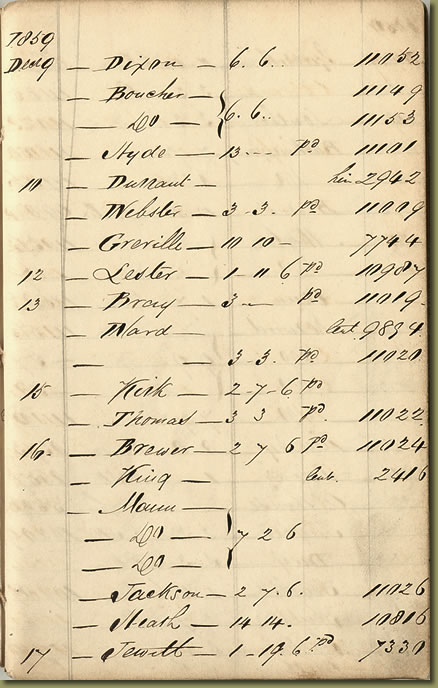 1859
Decr 9 — Dixon — 6. 6.. 11052
— Boucher — 11149
— Do — } 6. 6.. 11153
— Hyde — 13 - - - pd 11101
10 — Durrant — 2942
— Webster — 3 - 3. pd 11009
— Greville — 10 10 - 7744
12 — Lester — 1 - 11 6 pd 10987
13 — Bray — 3 — pd 11019
— Ward 9834
— — 3 3. pd 11020
15 — Kirk — 2 - 7 - 6 pd
— Thomas — 3 3 pd. 11022
16 - — Brewer — 2 7 6 pd 11024
— King — 2416
— Mann —
— Do — } 7 2 6
— Do —
— Jackson — 2 7. 6. 11026
— Heath — 14 14. 10816
17 — Jewitt — 1 - 19. 6 pd 7330